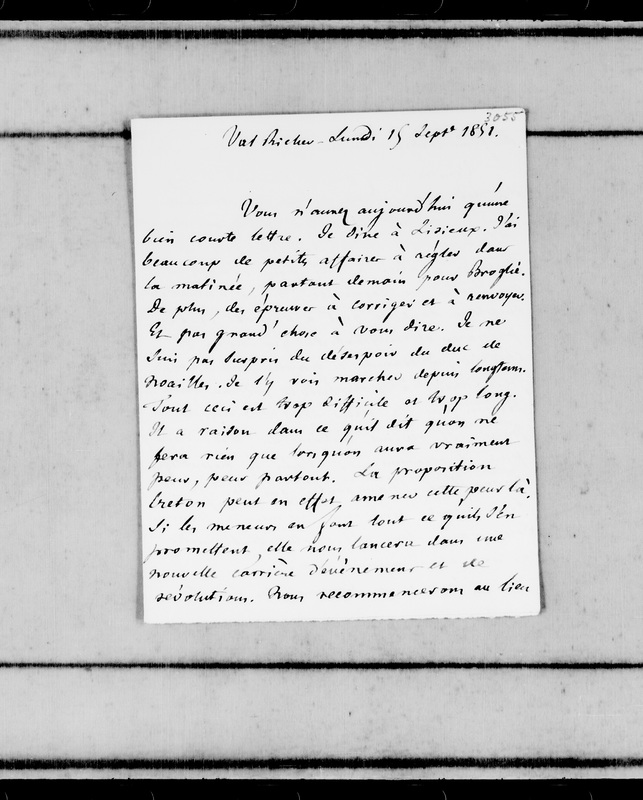 3055
Val Richer - Lundi 15 Septe 1851.
Vous n'aurez aujourd'hui qu'une
bien courte lettre. Je dine à Lisieux. J'ai
beaucoup de petites affaires à régler dans
la matinée, partant demain pour Broglie.
De plus, des épreuves à corriger et à renvoyer.
Et pas grand' chose à vous dire. Je ne
suis pas surpris du désespoir du duc de
Noailles. Je l'y vois marcher depuis longtems.
Tout ceci est trop difficile et trop long.
Il a raison dans ce qu'il dit qu'on ne
fera rien que lorsqu'on aura vraiment
peur, peur partout. La proposition
Creton peut en effet amener cette peur là.
Si les meneurs en font tout ce qu'ils s'en
promettent, elle nous lancera dans une
nouvelle carrière d'évènemens et de
révolutions. Nous recommencerons au lieu